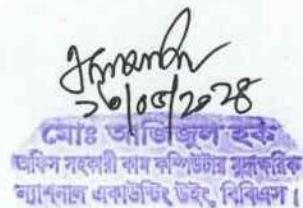 ২৬/০৫/২০২৪
মোঃ আজিজুল হক
অফিস সহকারী কাম কম্পিউটার মুদ্রাক্ষরিক
ন্যাশনাল একাউন্টিং উইং, বিবিএস।